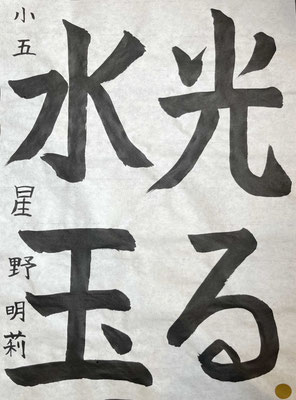 光る
水玉
小五 星野明莉